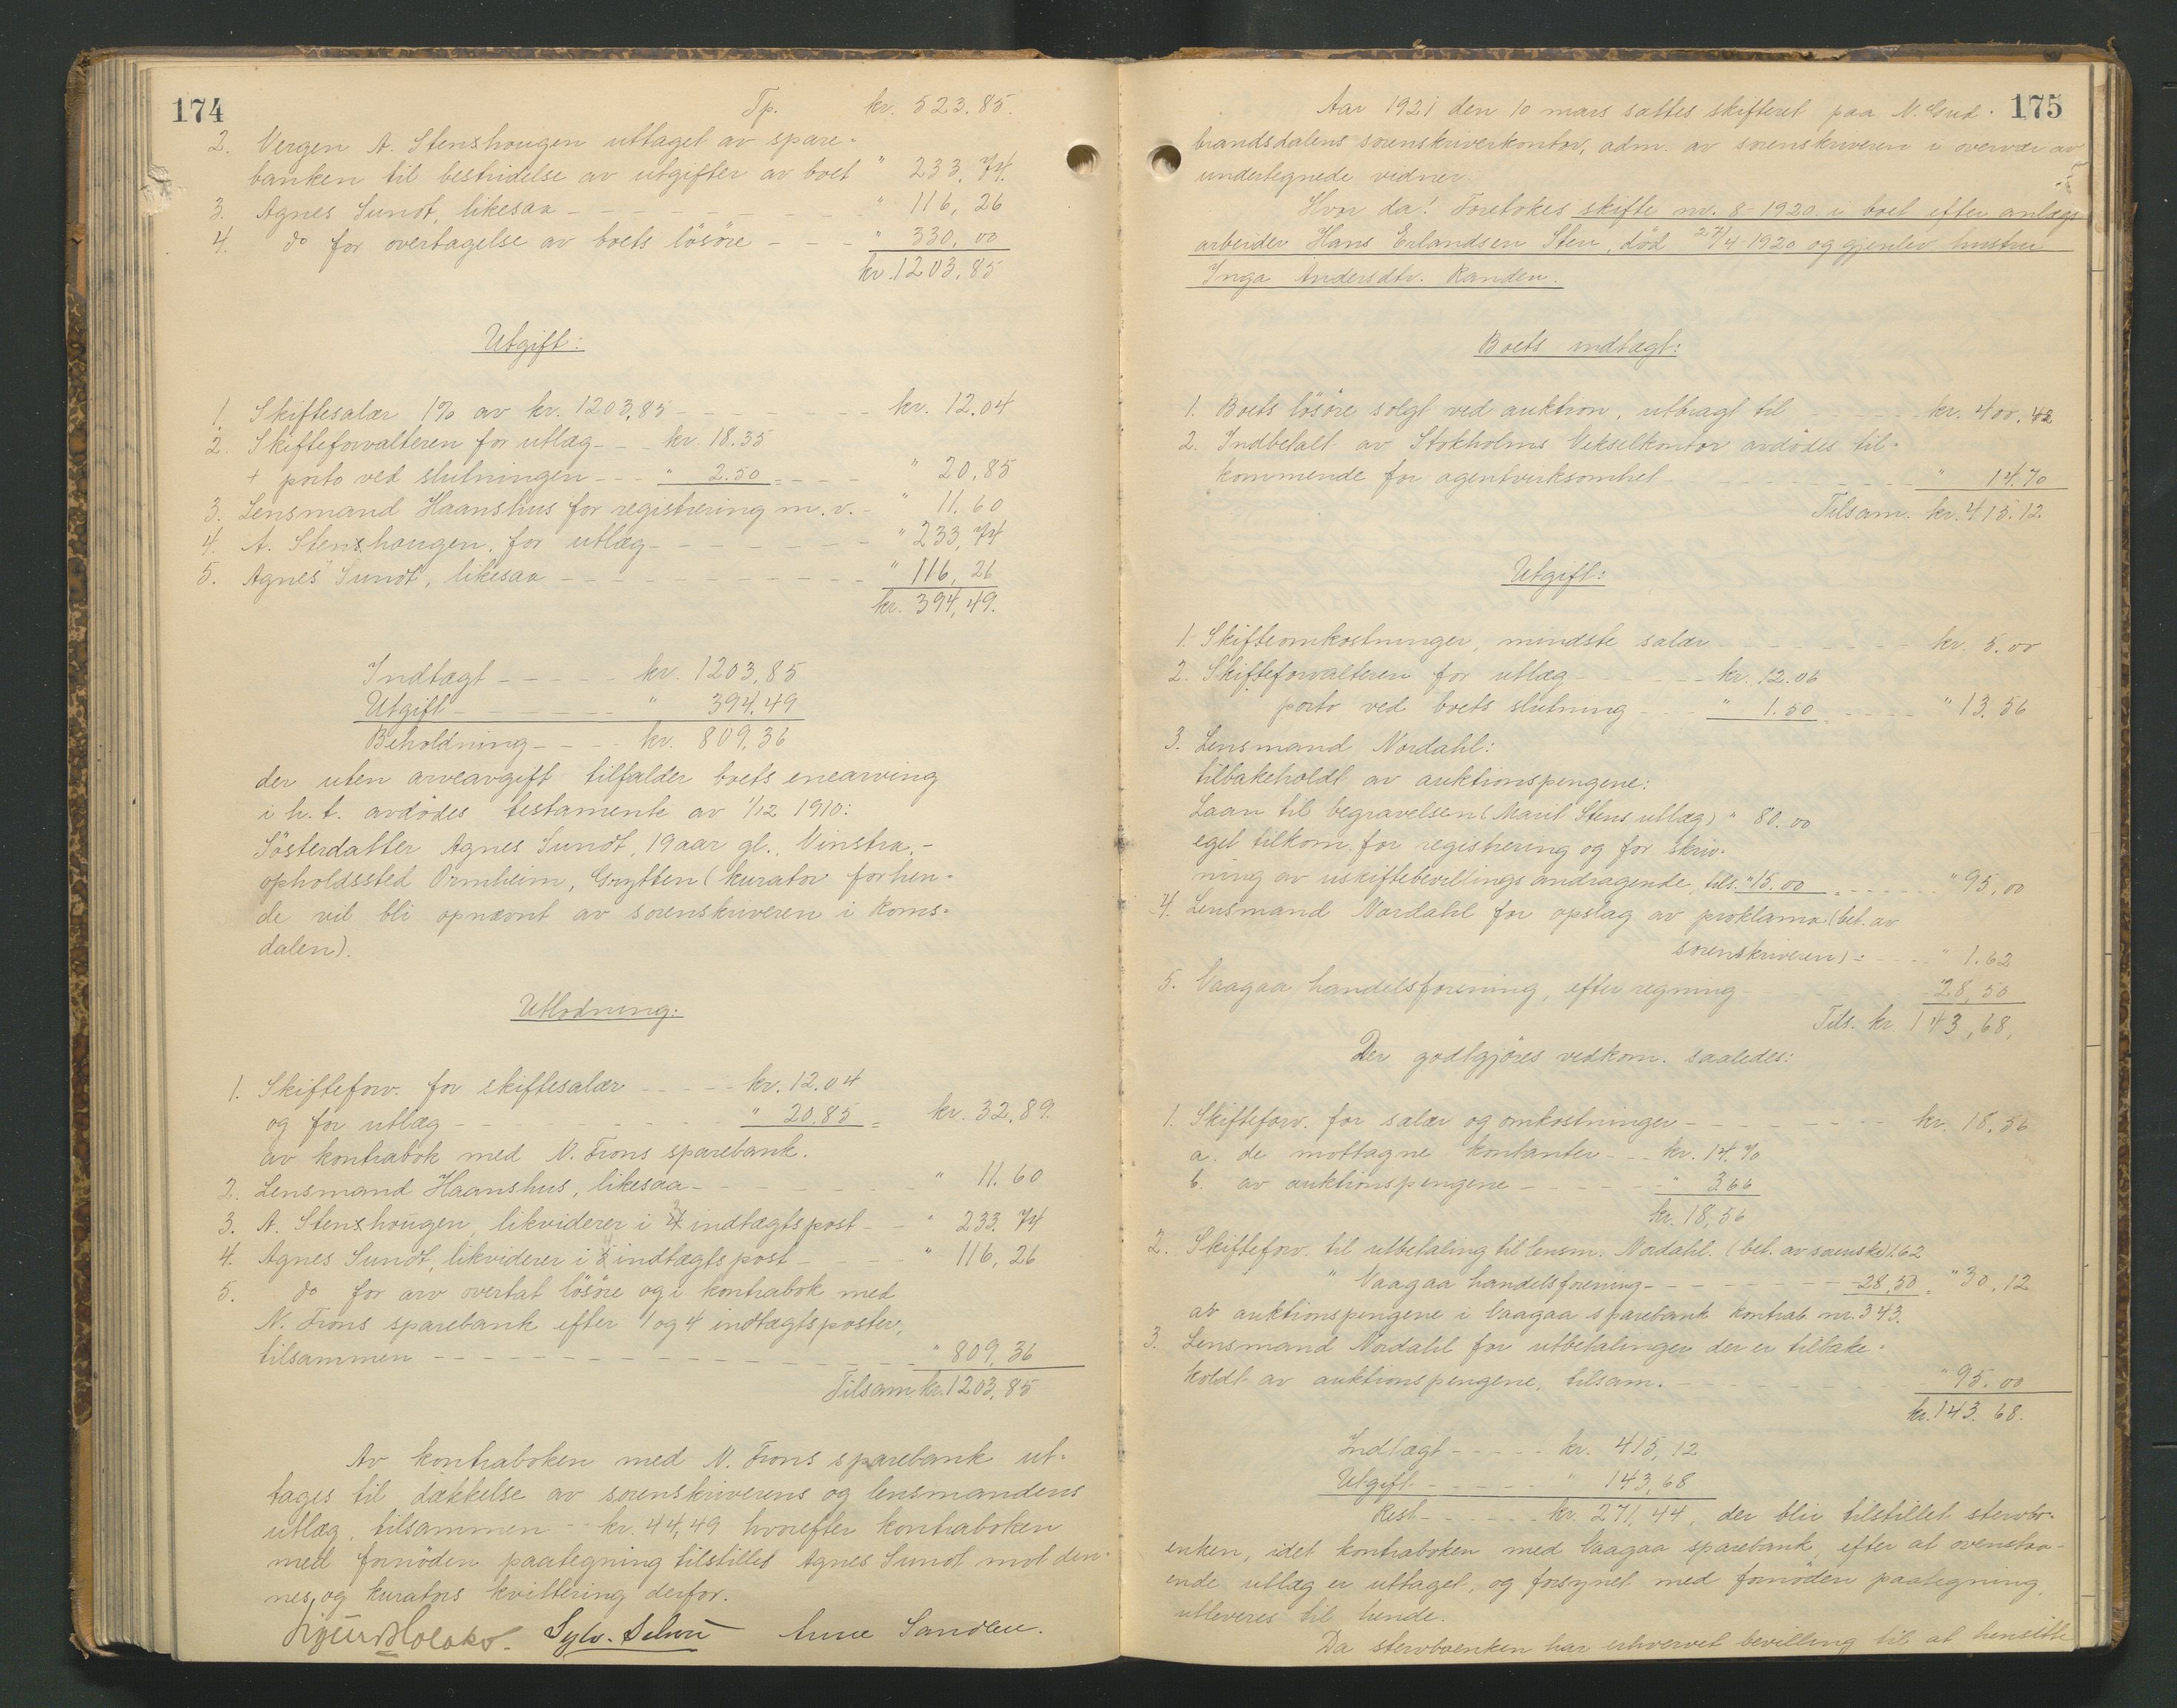 174
Tp. kr. 523.85.
2. Vergen A. Stenshougen uttaget av spare-
banken til bestridelse av utgifter av boet " 233.74.
3. Agnes Sundt, likesaa - - - " 116,26
4. do for overtagelse av boets lösöre - - - " 330,00
kr. 1203,85
Utgift:
1. Skiftesalær 1% av kr. 1203,85 - - - kr. 12.04
2. Skifteforvalteren for utlæg - - kr. 18.35
+ porto ved slutningen - - " 2.50 = - - - " 20,85
3. Lensmand Haanshus for registrering m.v. - " 11.60
4. A. Stenshougen, for utlæg - - - " 233,74
5. Agnes Sundt, likesaa - - - " 116,26
kr. 394,49.
Indtægt - - - kr. 1203,85
Utgift - - - " 394,49
Beholdning - - - kr. 809,36
der uten arveavgift tilfalder boets enearving
i h.t. avdödes testamente av 1/12 1910:
Sösterdatter Agnes Sundt, 19 aar gl., Vinstra, -
opholdssted Ormheim, Grytten (kurator for hen-
de vil bli opnævnt av sorenskriveren i Roms-
dalen).
Utlodning:
1. Skifteforv. for skiftesalær - - - kr. 12.04
og for utlæg - - - " 20.85 = kr. 32.89.
av kontrabok med N. Frons sparebank.
2. Lensmand Haanshus, likesaa - - - " 11.60
3. A. Stenshougen, likviderer i 2 indtægtspost - - " 233.74
4. Agnes Sundt, likviderer i 3 indtægtspost - - - " 116,26
5. do for arv overtat lösöre og i kontrabok med
N. Frons sparebank efter 1 og 4 indtægtsposter,
tilsammen - - - " 809,36
Tilsam. kr. 1203,85
Av kontraboken med N. Frons sparebank ut-
tages til dækkelse av sorenskriverens og lensmandens
utlæg, tilsammen - kr. 44,49 hvorefter kontraboken
med fornöden paategning tilstilles Agnes Sundt mot den-
nes og kurators kvittering derfor.
Anne Sandlen.
175
Aar 1921 den 10 mars sattes skifteret paa N. Gud-
brandsdalens sorenskriverkontor, adm. av sorenskriveren i overvær av
undertegnede vidner.
Hvor da! Foretokes skifte nr. 8-1920 i boet efter anlægs
arbeider Hans Erlandsen Sten, död 27/4-1920 og gjenlev. hustru
Inga Andersdtr. Randen.
Boets indtægt:
1. Boets lösöre solgt ved auktion, utbragt til - - - kr. 400.42
2. Indbetalt av Stokholms Vekselkontor avdödes til-
kommende for agentvirksomhet - - - " 14.70
Tilsam. kr. 415.12.
Utgift:
1. Skifteomkostninger, mindste salær - - - kr. 5.00
2. Skifteforvalteren for utlæg - - - kr. 12.06
porto ved boets slutning - - - " 1.50 - - - " 13.56
3. Lensmand Nordahl:
tilbakeholdt av auktionspengene:
Laan til begravelsen (Marit Stens utlæg) " 80.00
eget tilkom. for registrering og for skriv-
ning av uskiftebevillingsandragende, tils. " 15.00 - - - " 95,00
4. Lensmand Nordahl for opslag av proklama (bet. av
sorenskriveren) = - - - " 1.62
5. Vaagaa handelsforening, efter regning - - - 28,50
Tils. kr. 143,68,
Der godtgjöres vedkom. saaledes:
1. Skifteforv. for salær og omkostninger - - - kr. 18,56
a. de mottagne kontanter - - kr. 14.70
b. av auktionspengene - - - " 3.66
kr. 18,56
2. Skifteforv. til utbetaling til lensm. Nordahl. (bet. av sorenskr.) 1.62
" " Vaagaa handelsforening - - - 28,50 = " 30,12
av auktionspengene i Vaagaa sparebank kontrab. nr. 343.
3. Lensmand Nordahl for utbetalinger der er tilbake-
holdt av auktionspengene, tilsam. - - - " 95.00
kr. 143.68.
Indtægt - - - kr. 415,12
Utgift - - - " 143,68
Rest - - - kr. 271,44, der blir tilstillet stervbo-
enken, idet kontraboken med Vaagaa sparebank, efter at ovenstaa-
ende utlæg er uttaget, og forsynet med fornöden paategning,
utleveres til hende.
Da stervboenken har erhvervet bevilling til at hensitte